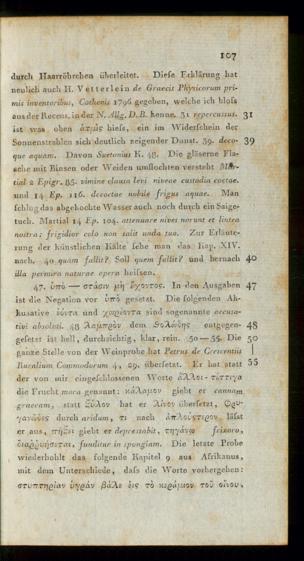 107
durch Haarröhrchen überleitet. Diese Erklärung hat
neulich auch H. Vetterlein de Graecis Physicorum pri-
mis inventoribus, Cothenis 1796 gegeben, welche ich bloſs
aus der Recens. in der N. Allg. D. B. kenne. 31 repercussus. 31
ist was oben ἀτμὶς hieſs, ein im Widerschein der
Sonnenstrahlen sich deutlich zeigender Dunst. 39. deco- 39
que aquam. Davon Suetonius K. 48. Die gläserne Fla-
sche mit Binsen oder Weiden umflochten versteht Mar-
tial 2 Epigr. 85. vimine clausa levi niveae custodia coctae.
und 14 Ep. 116. decoctae nobile frigus aquae. Man
schlug das abgekochte Wasser auch noch durch ein Saige-
tuch. Martial 14 Ep. 104. attenuare nives norunt et lintea
nostra; frigidior colo non salit unda tuo. Zur Erläute-
rung der künstlichen Kälte sehe man das Kap. XIV.
nach. 40 quam fallit? Soll quem fallit? und hernach 40
illa permiro naturae opera heiſsen.
47. ὑπὸ — στάσιν μὴ ἔχοντος. In den Ausgaben 47
ist die Negation vor ὑπὸ gesetzt. Die folgenden Ak-
kusative ἰόντα und χωρέοντα sind sogenannte accusa-
tivi absoluti. 48 λαμπρὸν dem θολώδης entgegen- 48
gesetzt ist hell, durchsichtig, klar, rein. 50—55. Die 50
ganze Stelle von der Weinprobe hat Petrus de Crescentiis |
Ruralium Commodorum 4, 29. übersetzt. Er hat statt 55
der von mir eingeschlossenen Worte ἄλλοι - τέττιγα
die Frucht mora genannt: κάλαμον giebt er cannam
graecam, statt ξύλον hat er λίνον übersetzt,
durch aridum, τι nach ἁπλούστερον läſst
er aus, πήξει giebt er depraesabit, τηγάνῳ feixoro,
διαῤῥαγήσεται, funditur in spongiam. Die letzte Probe
wiederhohlt das folgende Kapitel 9 aus Afrikanus,
mit dem Unterschiede, daſs die Worte vorhergehen:
στυπτηρίαν ὑγρὰν βάλε εἰς τὸ κεράμιον τοῦ οἴνου,